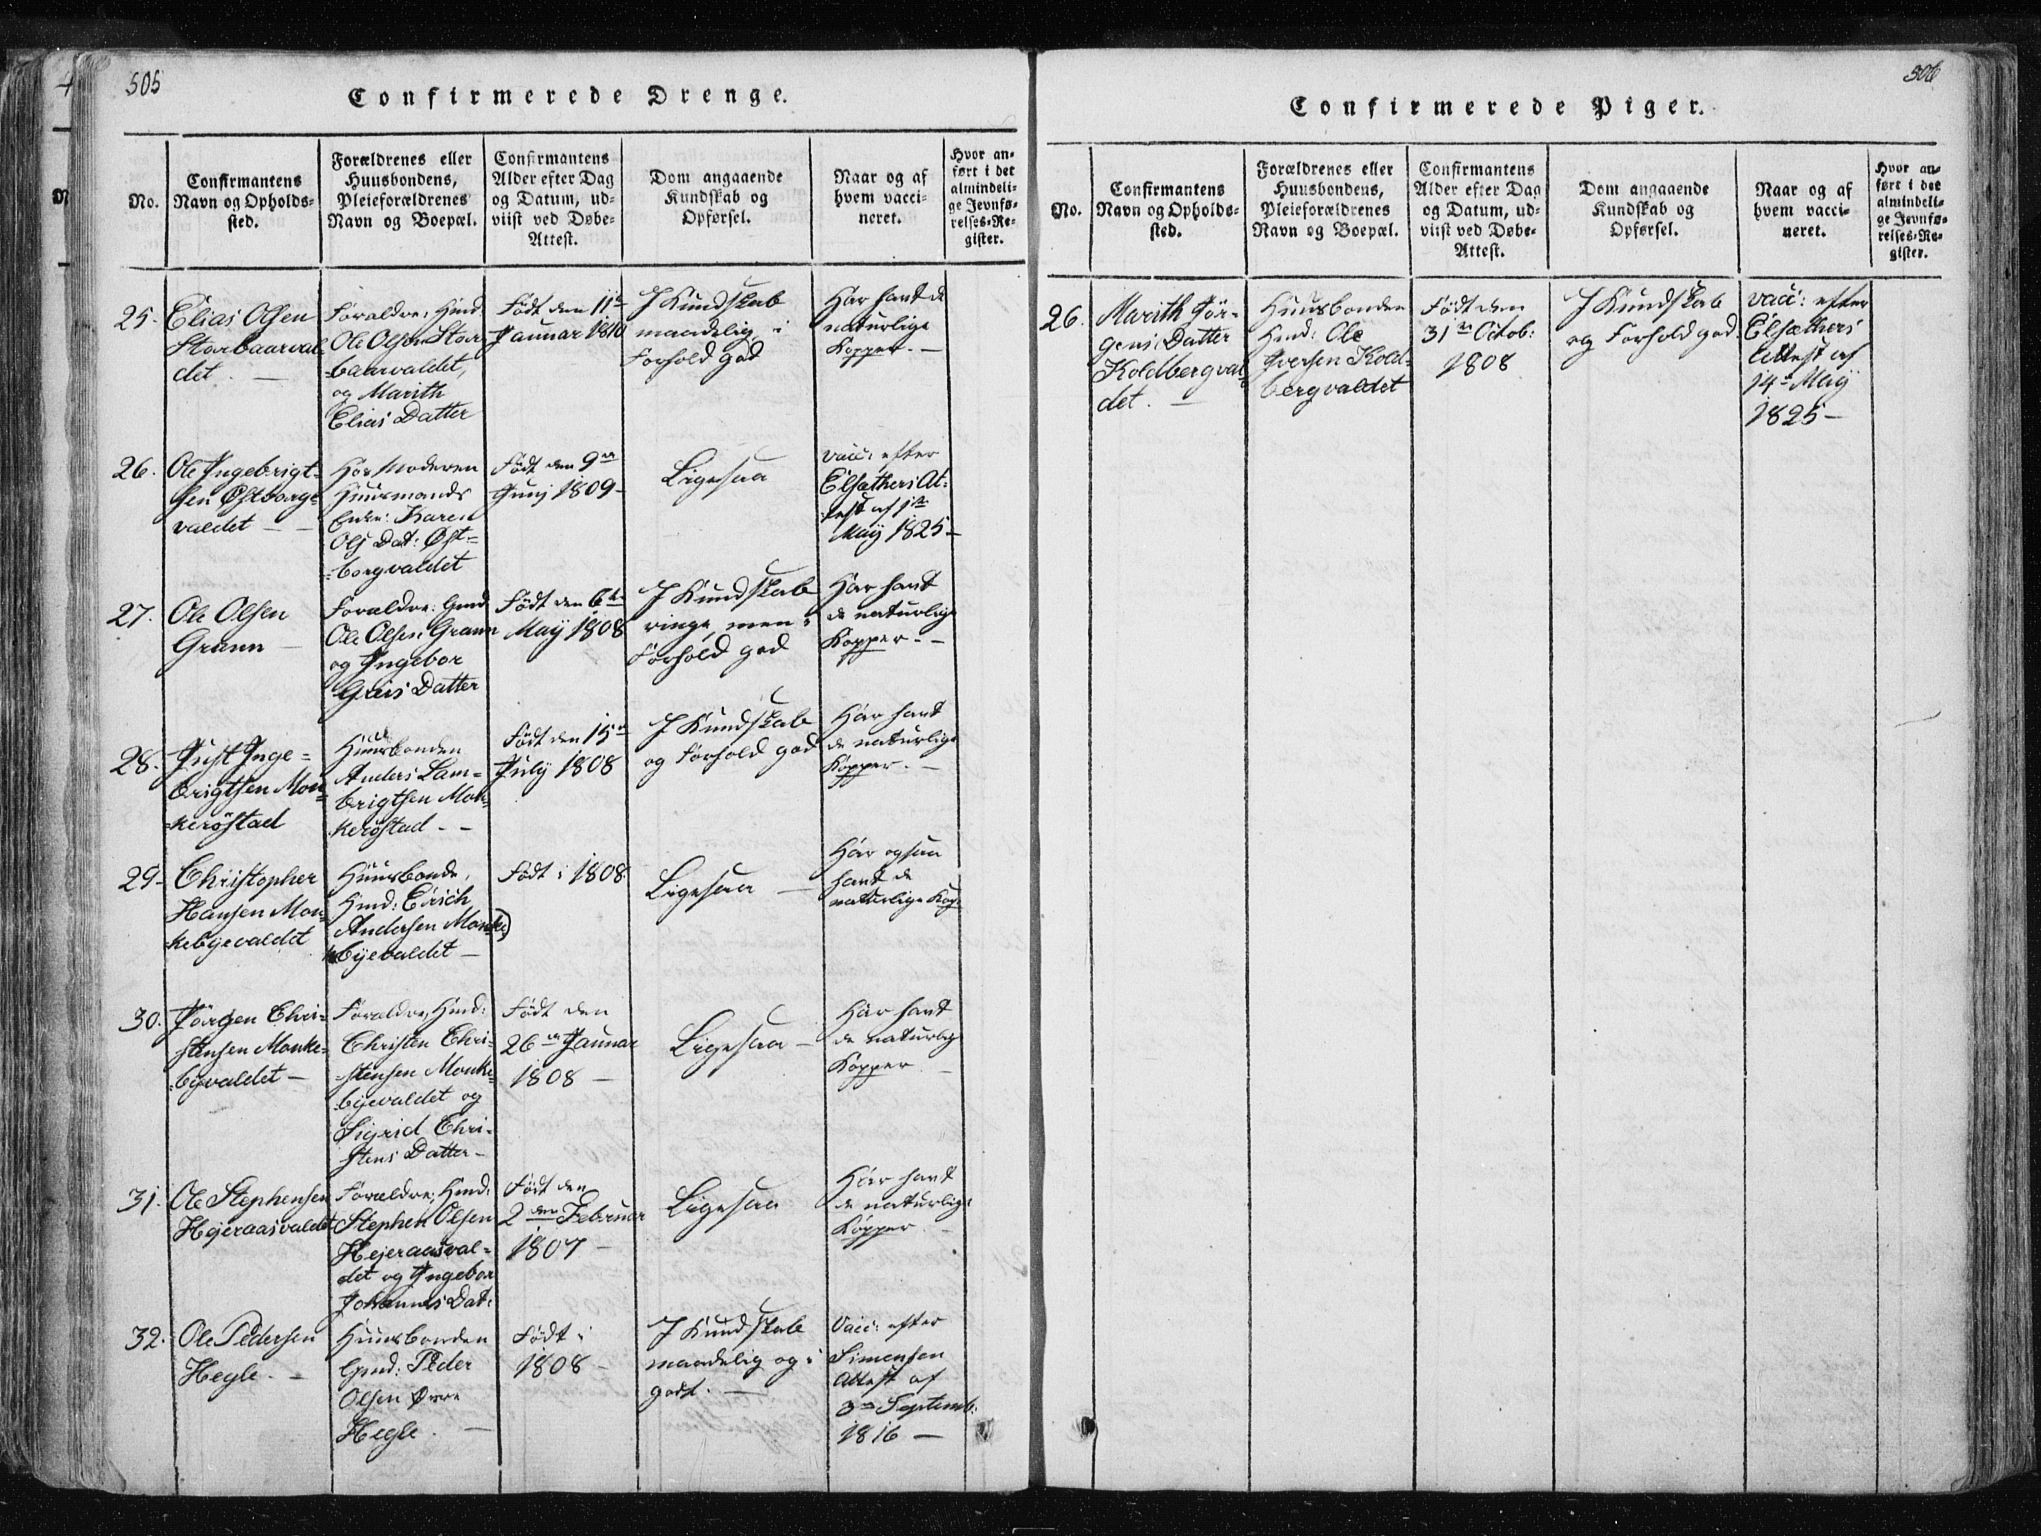 505
Confirmerede Drenge.
No.
Confirmantens
Navn og Opholds-
sted.
Forældrenes eller
Huusbondens,
Pleieforældrenes
Navn og Boepæl.
Confirmantens
Alder efter Dag
og Datum, ud-
viist ved Døbe-
Attest.
Dom angaaende
Kundskab og
Opførsel.
Naar og af
hvem vacci-
neret.
Hvor an-
ført i det
almindeli-
ge Jevnfø-
relses-Re-
gister.
25.
Elias Olsen
Storbaarval
det. —
Forældre: Hmd
Ole Olsen Stor
-baarvaldet,
og Marith
Elias Datter
Født den 11te
Januar 1810
I Kundskab
maadelig, i
Forhold god
Har havt de
naturlige
Kopper. —
26.
Ole Ingebrigt-
sen Østborg-
valdet —
Hos Moderen
Huusmands
Enke: Karen
Ols Dat: Øst-
-borgvaldet
Født den 9de
Junj 1809-
Ligesaa
vacc: efter
Elsæthers At-
test af 1ste
Maÿ 1825-
27.
Ole Olsen
Grann —
Forældre: Gmd
Ole Olsen Grann
og Ingebor
Født den 6te
Maÿ 1808
I Kundskab
ringe, men i
Forhold god
Har havt
de naturlige
Kopper. —
28.
Just Inge-
brigtsen Mon-
kerøstad
Huusbonden
Anders Lam-
brigtsen Mon-
kerøstad - -
Født den 15de
Julÿ 1808
I Kundskab
og Forhold god
Har havt
de naturlige
Kopper. —
29-
Christopher
Hansen Mon-
kebÿevaldet
Huusbonde,
Hmd: Eirich
Andersen Monke)
bÿevaldet —
Født i 1808.
Ligesaa —
Har ogsaa
havt de
naturlige Kop-
30.
Jørgen Chri-
stensen Monke-
bÿvaldet —
Forældre, Hmd:
Christen Chri-
-stensen Monke-
bÿevaldet og
Sigrid Chri-
stens Datter-
Født den
26de Januar
1808 —
Ligesaa —
Har havt
de naturlig
Kopper. —
31.
Ole Stephensen
Hejeraasvaldet
Forældre, Hmd:
Stephen Olsen
Hejeraasval-
det og Ingebor
Johannes Dat:
Født den
2den Februar
1807 —
Ligesaa
Har havt
de naturlige
Kopper. —
32.
Ole Pedersen
Hegle. —
Huusbonden
Gmd: Peder
Olsen Øvre
Hegle. —
Født i
1808 —
I Kundskab
maadelig og i
godt. —
Vacc: efter
Simensen
Attest af
3de Septemb:
1816 —
306
Confirmerede Piger.
No.
Confirmantens
Navn og Opholds-
sted.
Forældrenes eller
Huusbondens,
Pleieforældrenes
Navn og Boepæl.
Confirmantens
Alder efter Dag
og Datum, ud-
viist ved Døbe-
Attest.
Dom angaaende
Kundskab og
Opførsel.
Naar og af
hvem vacci-
neret.
Hvor an-
ført i det
almindeli-
ge Jevnfø-
relses-Re-
gister.
26.
Marith Jør-
gens Datter
Koldbergval-
det. —
Huusbonden
Hmd: Ole
Iversen Kold-
bergvaldet
Født den
31te Octob:
1808
I Kundskab
og Forhold god
vacc: efter
Elsæthers
Attest af
14de Maÿ
1825 —